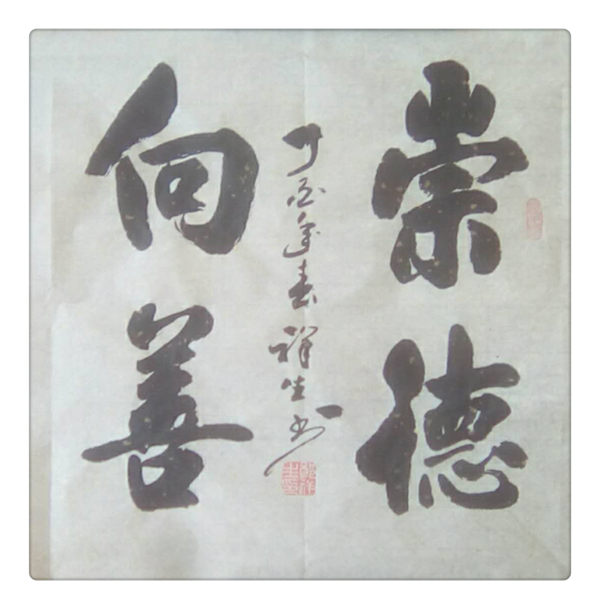 崇德
向善
丁酉年春祥生书